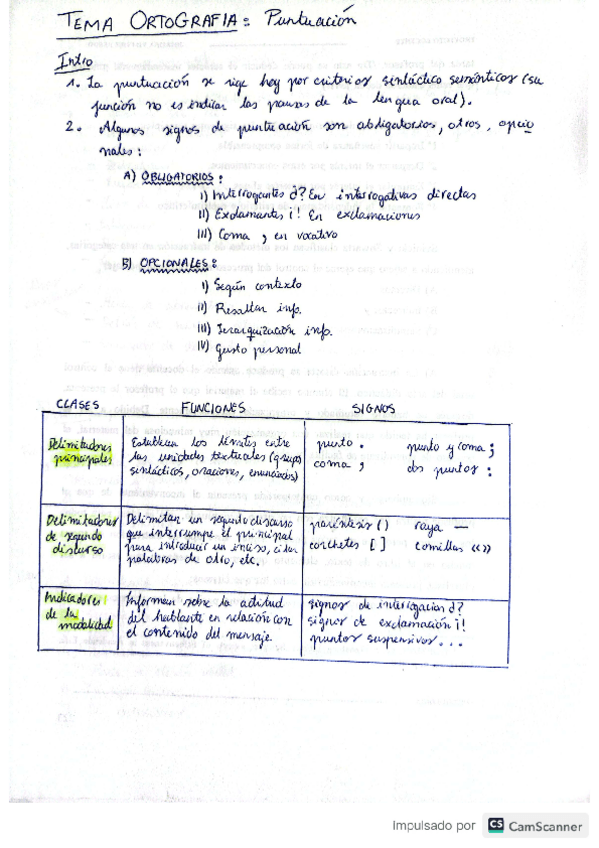 TEMA ORTOGRAFIA: Puntuación
Intro
1. La puntuación se rige hoy por criterios sintáctico semánticos (su
función no es indicar las pausas de la lengua oral).
2. Algunos signos de puntuación son obligatorios, otros, opcio
nales:
A) OBLIGATORIOS:
I) Interrogantes ¿? En interrogativas directas
II) Exclamantes ¡! En exclamaciones
III) Coma , en vocativo
B) OPCIONALES:
I) Según contexto
II) Resaltar info.
III) Jerarquización info.
IV) Gusto personal
CLASES FUNCIONES SIGNOS
Delimitadores principales
Establecen los límites entre
las unidades textuales (grupos
sintácticos, oraciones, enunciados)
punto . punto y coma ;
coma , dos puntos :
Delimitadores
de segundo
discurso
Delimitan un segundo discurso
que interrumpe el principal
para introducir un inciso, citar
palabras de otro, etc.
paréntesis () raya —
corchetes [ ] comillas «»
Indicadores
de la
modalidad
Informan sobre la actitud
del hablante en relación con
el contenido del mensaje.
signos de interrogación ¿?
signos de exclamación ¡!
puntos suspensivos...
Impulsado por CS CamScanner